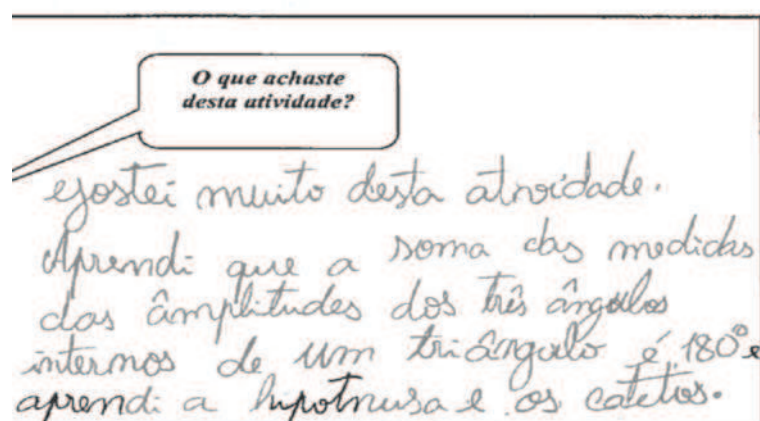 O que achaste
desta atividade?
Gostei muito desta atividade.
Aprendi que a soma das medidas
das âmplitudes dos três ângulos
internos de um triângulo é 180° e
aprendi a hipotnusa e os catetos.